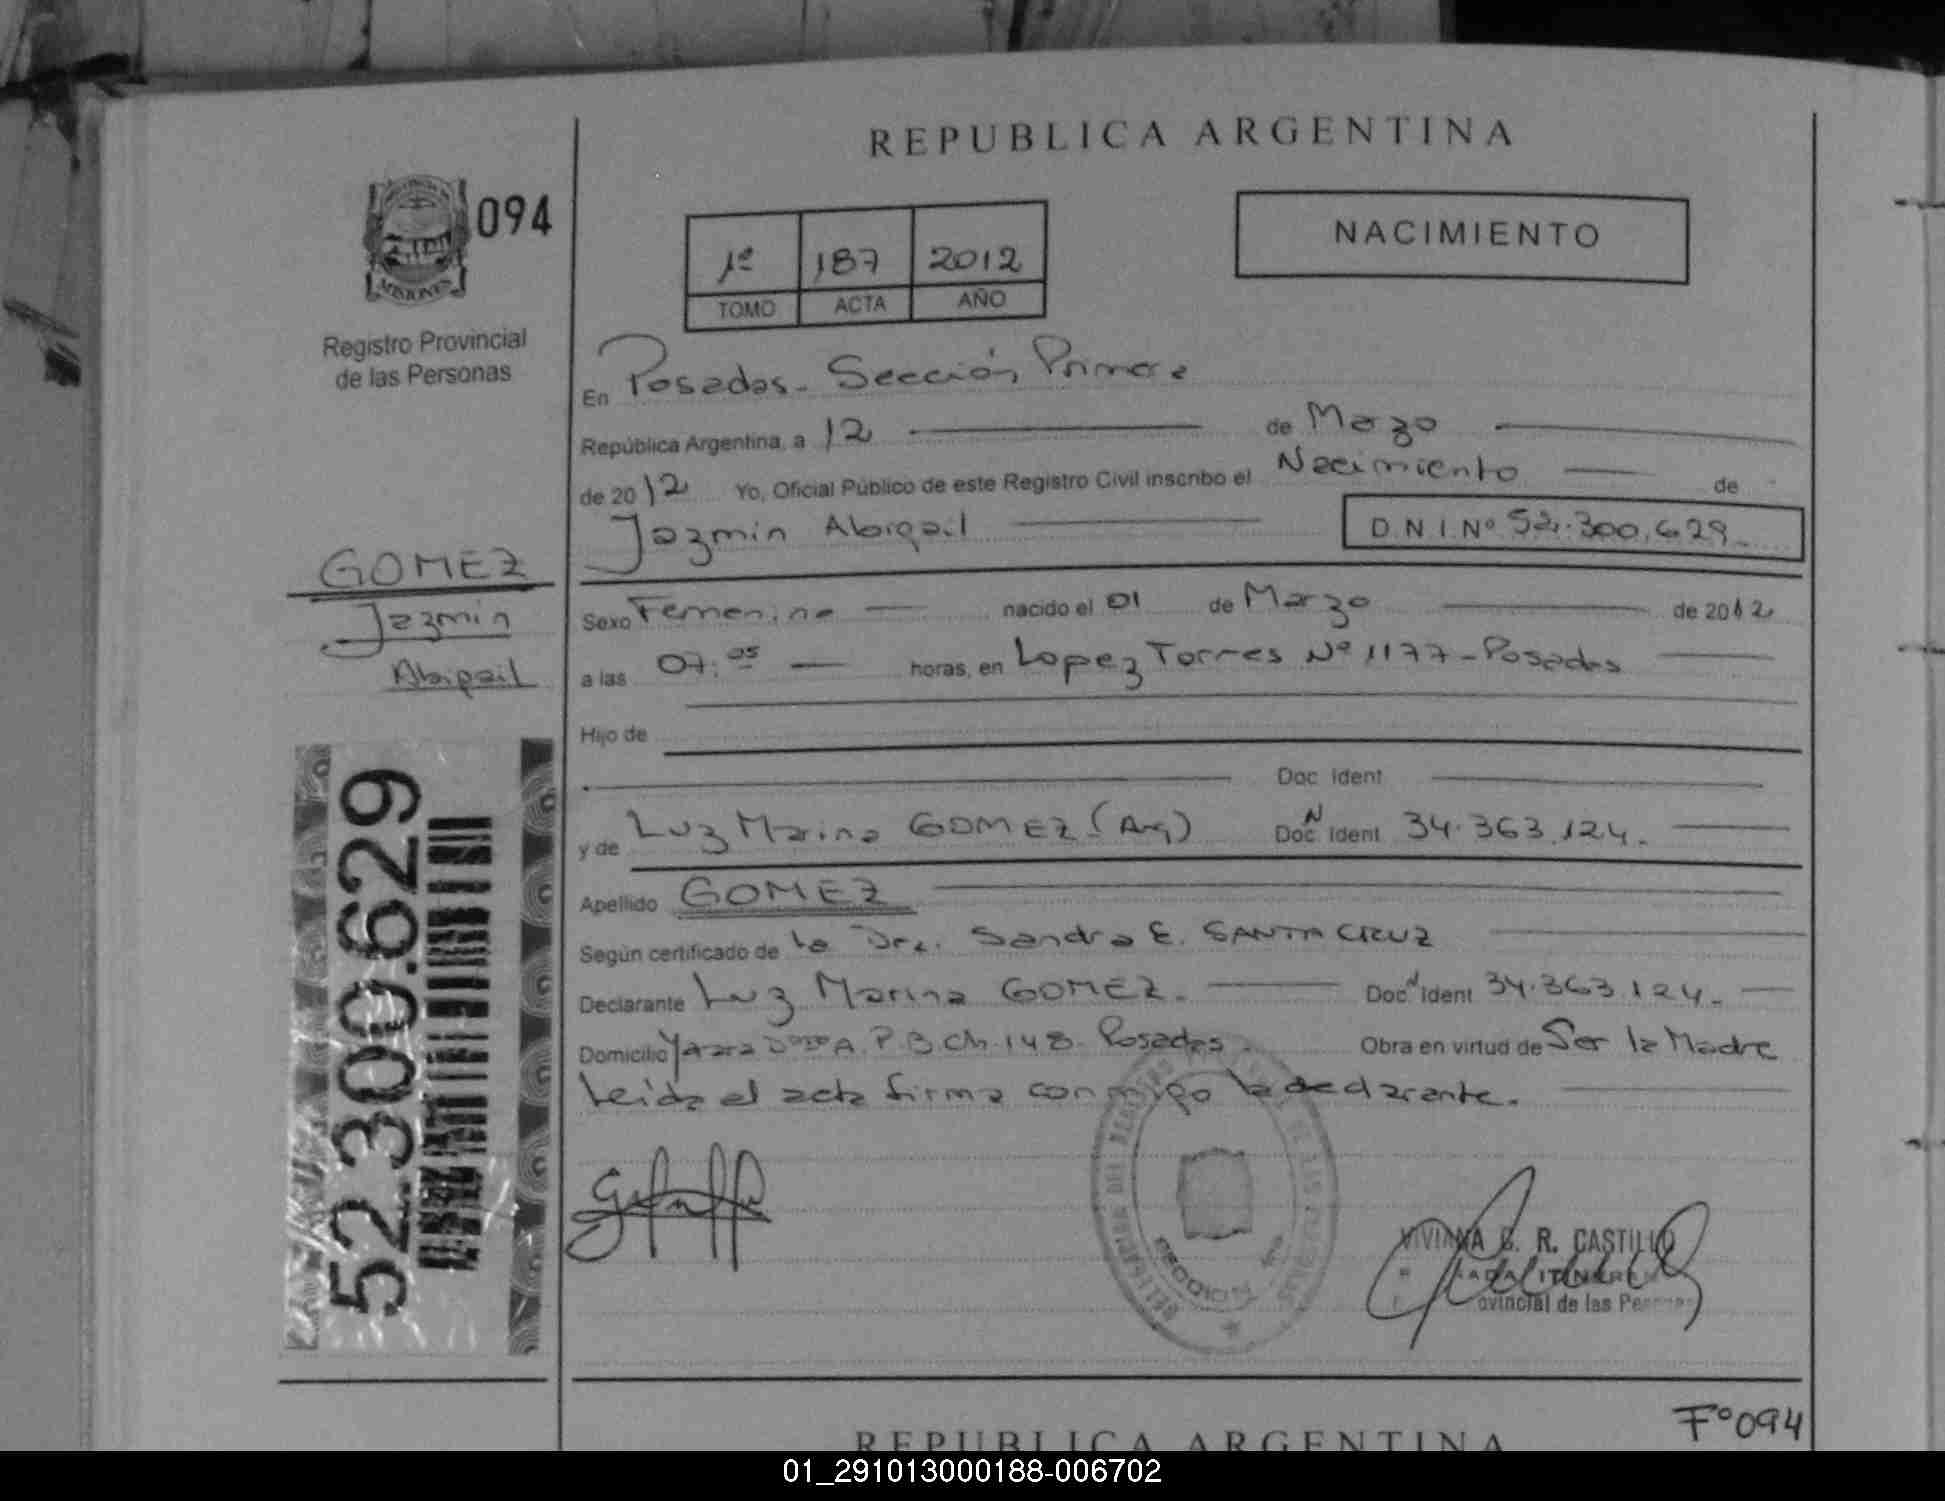 REPUBLICA ARGENTINA
094
MISIONES
Registro Provincial
de las Personas
1º 187 2012
TOMO ACTA AÑO
NACIMIENTO
En Posadas - Sección Primera
República Argentina, a 12 de Marzo
de 2012 Yo, Oficial Público de este Registro Civil inscribo el Nacimiento de
Jazmin Abigail D.N.I.Nº 52.300.629
GOMEZ
Jazmin
Abigail
Sexo Femenino nacido el 01 de Marzo de 2012
a las 07:05 horas, en Lopez Torres Nº 1177 - Posadas
Hijo de
Doc. Ident
y de Luz Marina GOMEZ (Arg) Doc. N Ident 34.363.124.
Apellido GOMEZ
Según certificado de la Dra. Sandra E. SANTA CRUZ
Declarante Luz Marina GOMEZ. Doc. N Ident 34.363.124.
Domicilio A. P.B Ch. 148 Posadas Obra en virtud de Ser la Madre
Leída el acta firma conmigo la declarante.
52.300.629
SECCION
VIVIANA G. R. CASTILLO
ITINERAN
ovincial de las Personas
Fº 094
REPUBLICA ARGENTINA
01_291013000188-006702